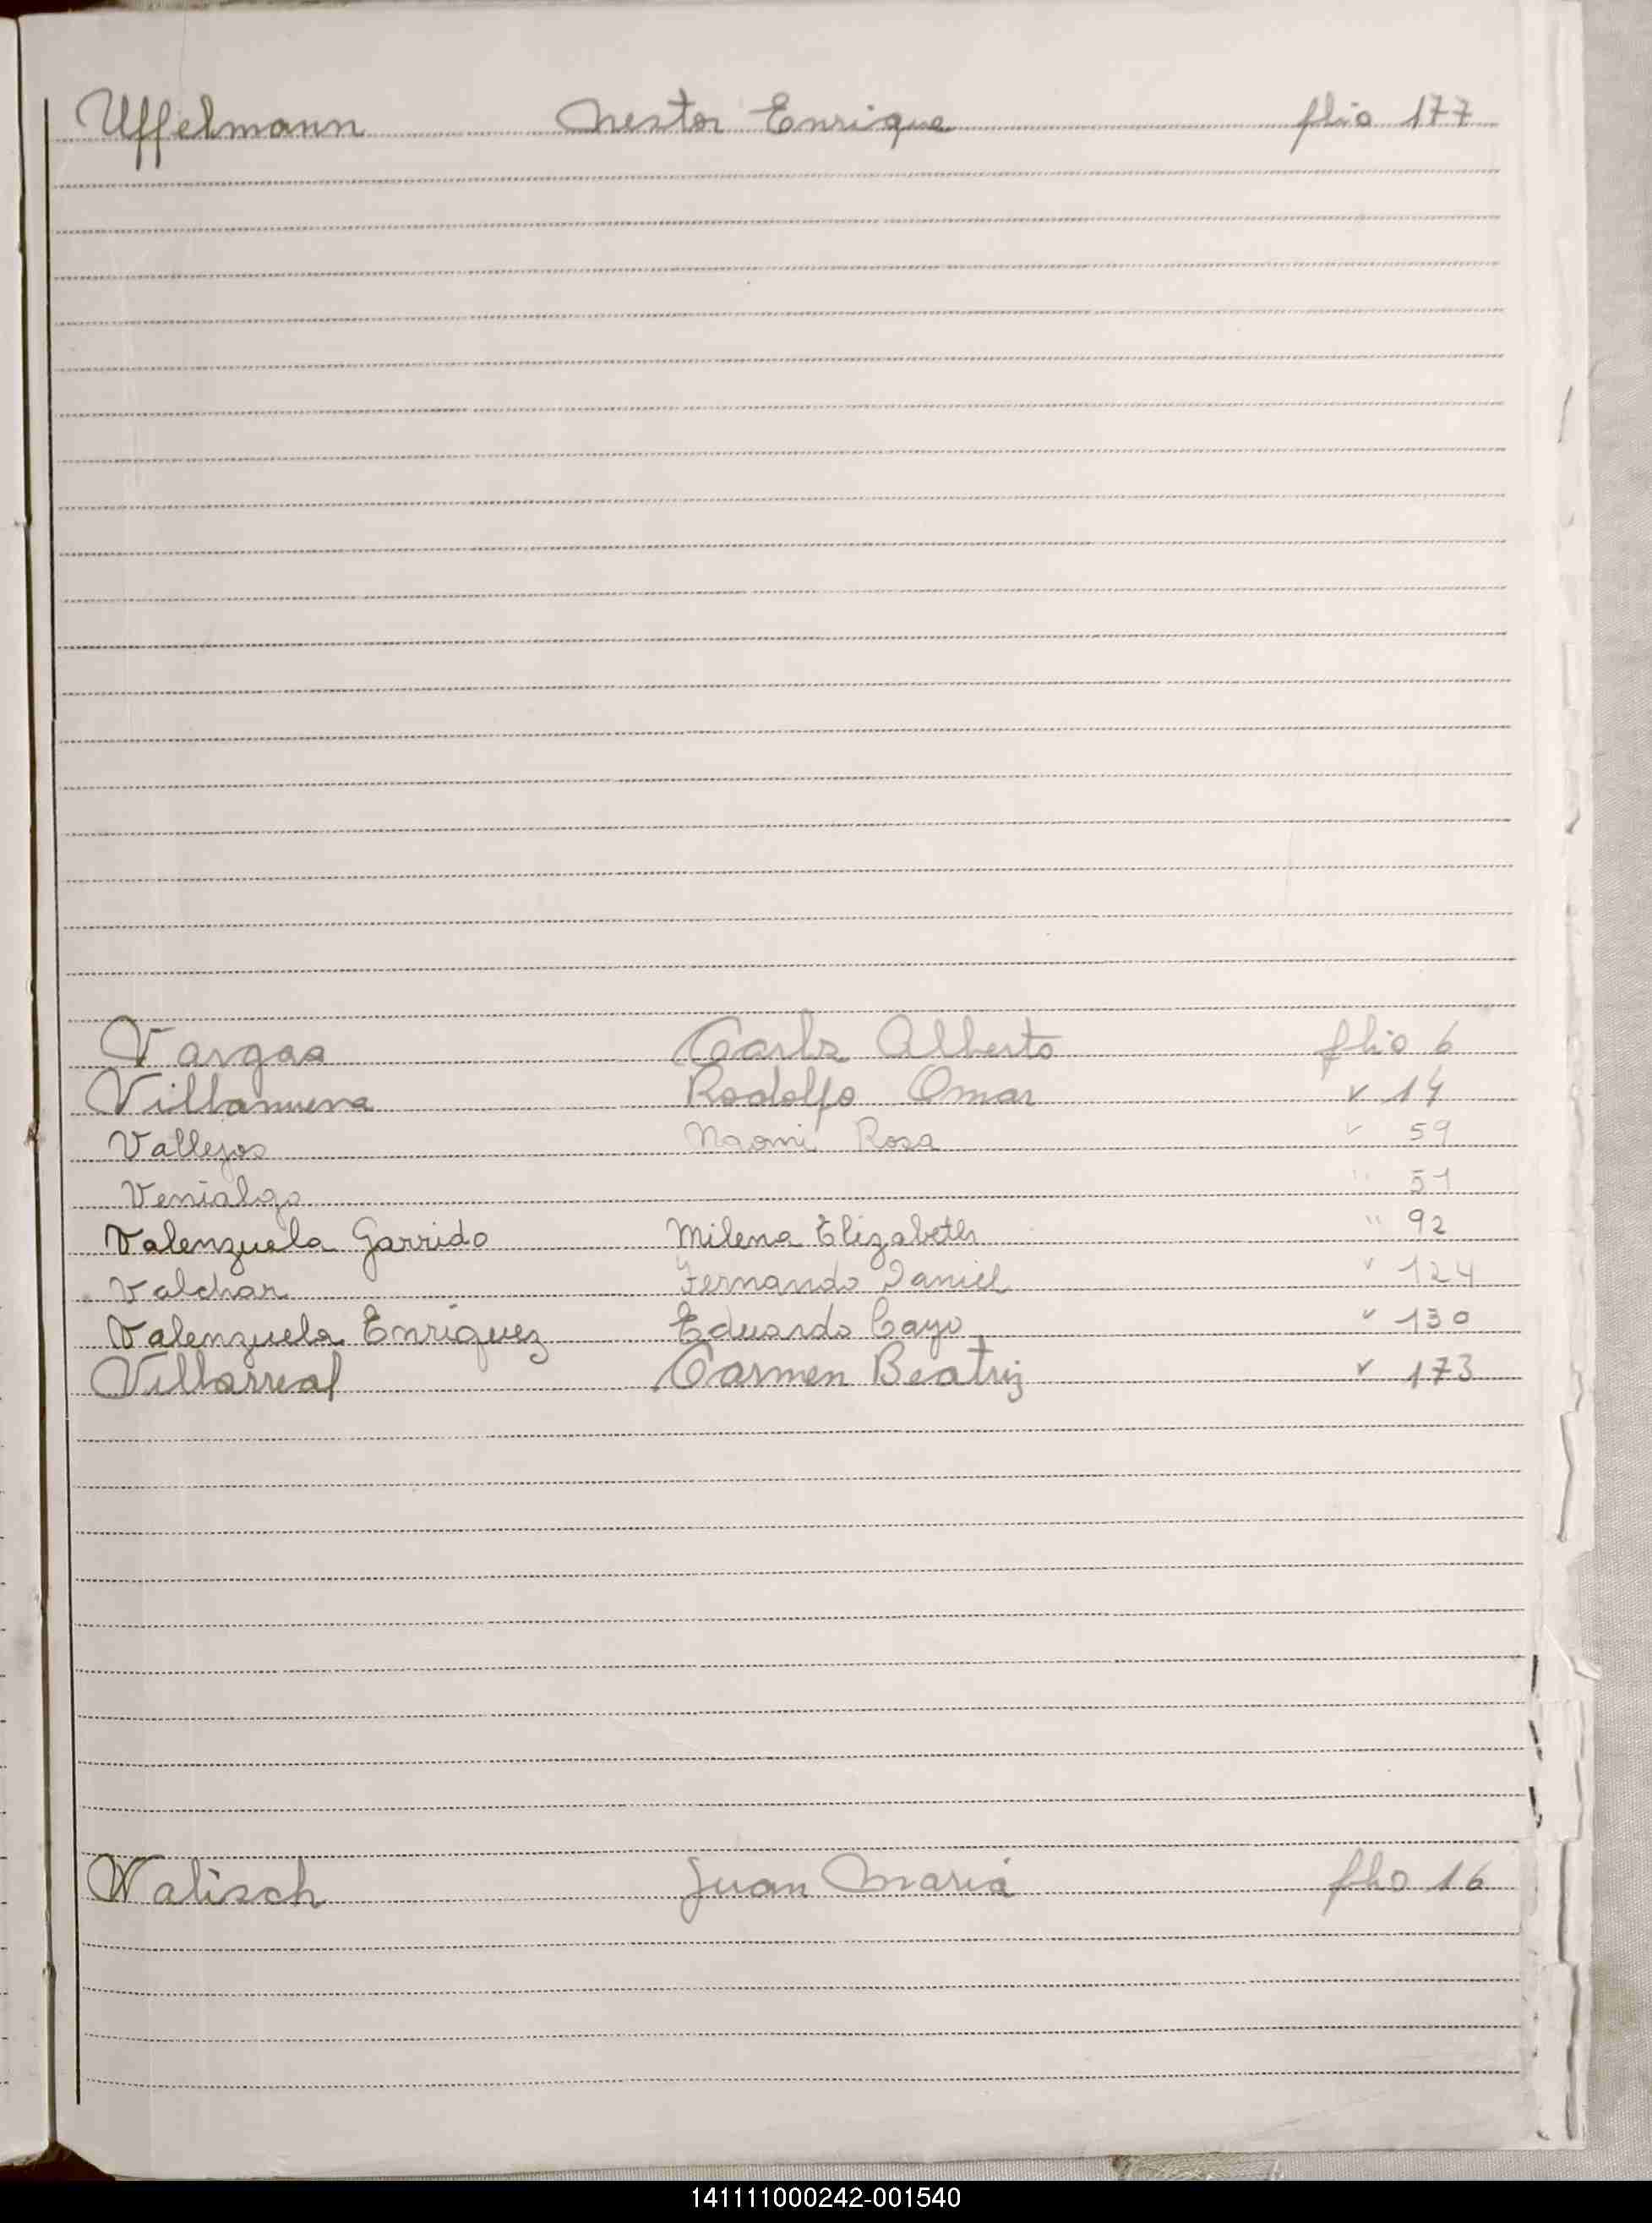 Uffelmann Nestor Enrique flio 177
Vargas Carlos Alberto flio 6
Villanueva Rodolfo Omar " 14
Vallejos Naomi Rosa " 59
Venialgo " 51
Valenzuela Garrido Milena Elizabeth " 92
Valchar Fernando Daniel " 124
Valenzuela Enriquez Eduardo Cayo " 130
Villarreal Carmen Beatriz " 173
Walisch Juan Maria flio 16
141111000242-001540